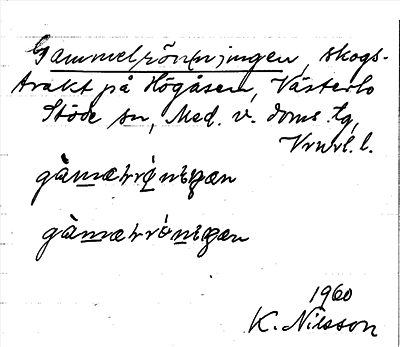 Gammelrön(n)ingen, skogs-
trakt på Högåsen, Västerlo
Stöde sn, Med. v. doms. tg,
gàmærrǿniŋæn
gàmærrǿniŋæn
1960
K. Nilsson